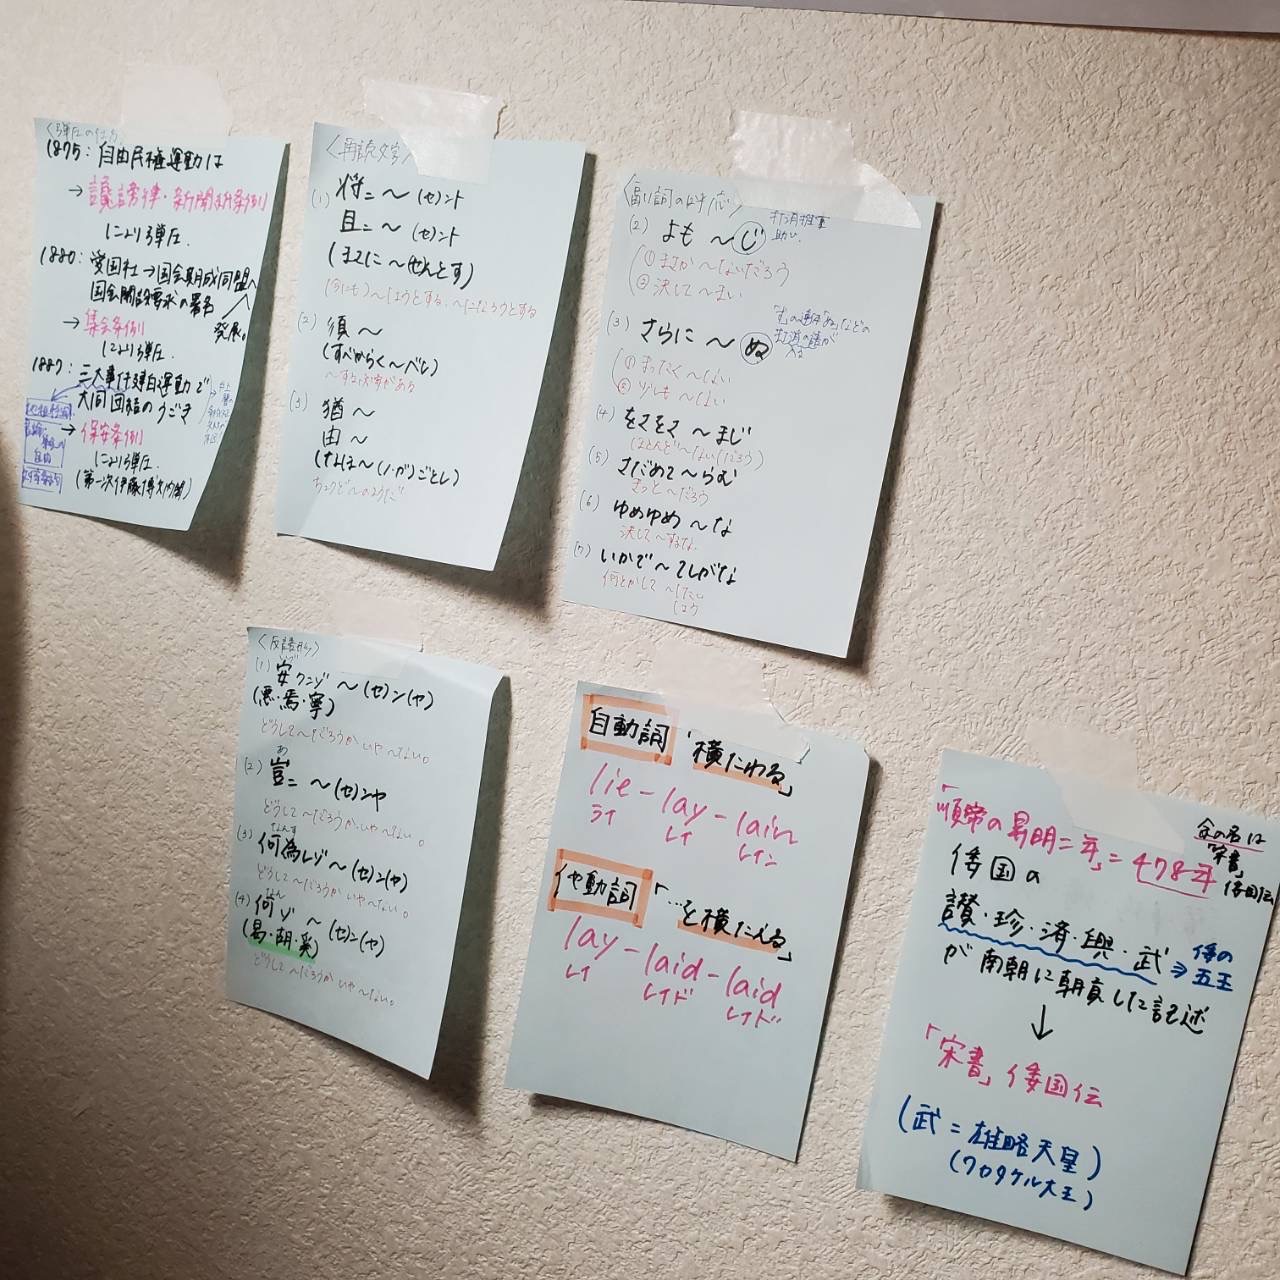 1875：自由民権運動は
→讒謗律・新聞紙条例
により弾圧.
1880：愛国社→国会期成同盟へ
国会開設要求の署名
発展。
→集会条例
により弾圧.
1887：三大事件建白運動で
大同団結のうごき
→保安条例
により弾圧.
(第一次伊藤博文内閣)
〈再読文字〉
(1) 将ニ〜(セ)ント
且ニ〜(セ)ント
(まさに〜(せ)んとす)
(今にも)〜しようとする、〜になろうとする
(2) 須〜
(すべからく〜べし)
〜する必要がある
(3) 猶〜
由〜
(なほ〜(ノ・ガ)ごとし)
ちょうど〜のようだ
〈副詞の呼応〉
(2) よも〜じ
打消推量
助し.
①まさか〜ないだろう
②決して〜まい
(3) さらに〜ぬ
①まったく〜ない
②少しも〜ない
(4) をさをさ〜まじ
ほとんど〜ない(だろう)
(5) さだめて〜らむ
きっと〜だろう
(6) ゆめゆめ〜な
決して〜するな.
(7) いかで〜てしがな
何とかして〜したい
しよう
〈反語形〉
(1) 安クンゾ〜(セ)ン(ヤ)
(悪・焉・寧)
どうして〜だろうか いや〜ない。
(2) 豈ニ〜(セ)ンヤ
あ
どうして〜だろうか いや〜ない。
(3) 何為レゾ〜(セ)ン(ヤ)
なんす
どうして〜だろうか いや〜ない。
(4) 何ゾ〜(セ)ン(ヤ)
なん
(曷・胡・奚)
どうして〜だろうか いや〜ない。
自動詞「横たわる」
lie - lay - lain
ライ レイ レイン
他動詞「…を横たえる」
lay - laid - laid
レイ レイド レイド
「順帝の昇明二年」=478年
倭国の
讃・珍・済・興・武⇒倭の
五王
が南朝に朝貢した記述
↓
「宋書」倭国伝
(武=雄略天皇)
(ワカタケル大王)